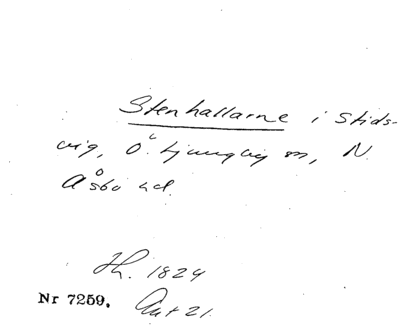 Stenhallarne i Stids-
vig, Ö. Ljungby sn, N.
Åsbo hd.
Th. 1824
Nr 7259. Ant 21.